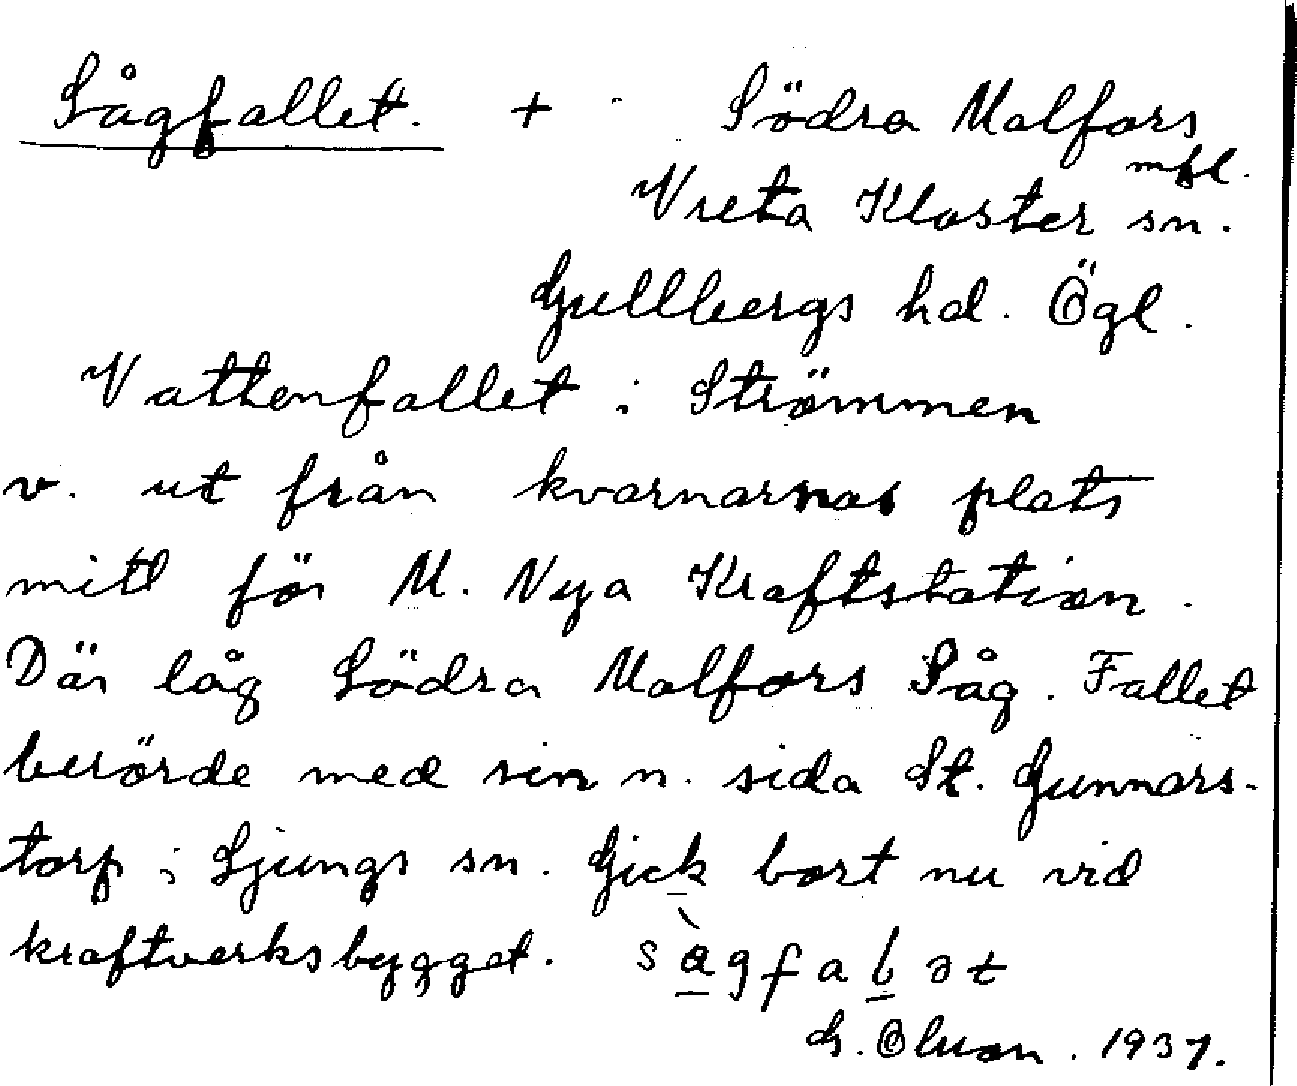 Sågfallet. + Södra Malfors
mfl.
Vreta Kloster sn.
Gullbergs hd. Ögl.
Vattenfallet i Strömmen
v. ut från kvarnarnas plats
mitt för M. Nya Kraftstation.
Där låg Södra Malfors Såg. Fallet
berörde med sin n. sida St. Gunnars-
torp i Ljungs sn. Gick bort nu vid
kraftverksbygget. sàgfaƚət
G. Olsson. 1937.